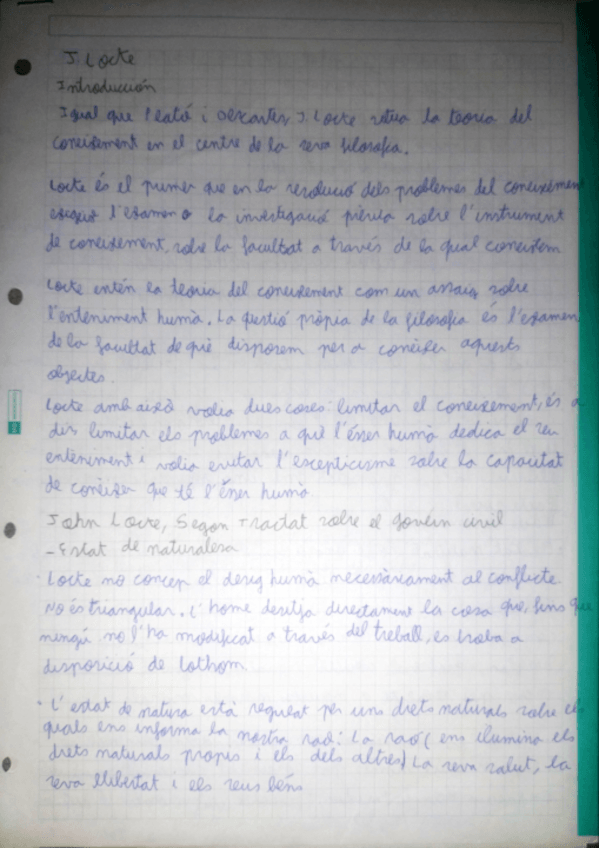 J. Locke
Introducción
Igual que Plató i Descartes, J. Locke situa la teoria del
coneixement en el centre de la seva filosofia.
Locke és el primer que en la resolució dels problemes del coneixement
exigeix l'examen o la investigació prèvia sobre l'instrument
de coneixement, sobre la facultat a través de la qual coneixem
Locke entén la teoria del coneixement com un assaig sobre
l'enteniment humà. La questió pròpia de la filosofia és l'examen
de la facultat de què disposem per a conèixer aquests
objectes.
Locke amb això volia dues coses: limitar el coneixement, és a
dir limitar els problemes a què l'ésser humà dedica el seu
enteniment i volia evitar l'escepticisme sobre la capacitat
de conèixer que té l'ésser humà
John Locke, Segon Tractat sobre el govern civil
- Estat de naturalesa
· Locke no concep el desig humà necessàriament al conflicte.
No és triangular. L'home desitja directament la cosa que, fins que
ningú no l'ha modificat a través del treball, es troba a
disposició de tothom
· L'estat de natura està regulat per uns drets naturals sobre els
quals ens informa la nostra raó: La raó (ens ilumina els
drets naturals propis i els dels altres) La seva salut, la
seva llibertat i els seus béns